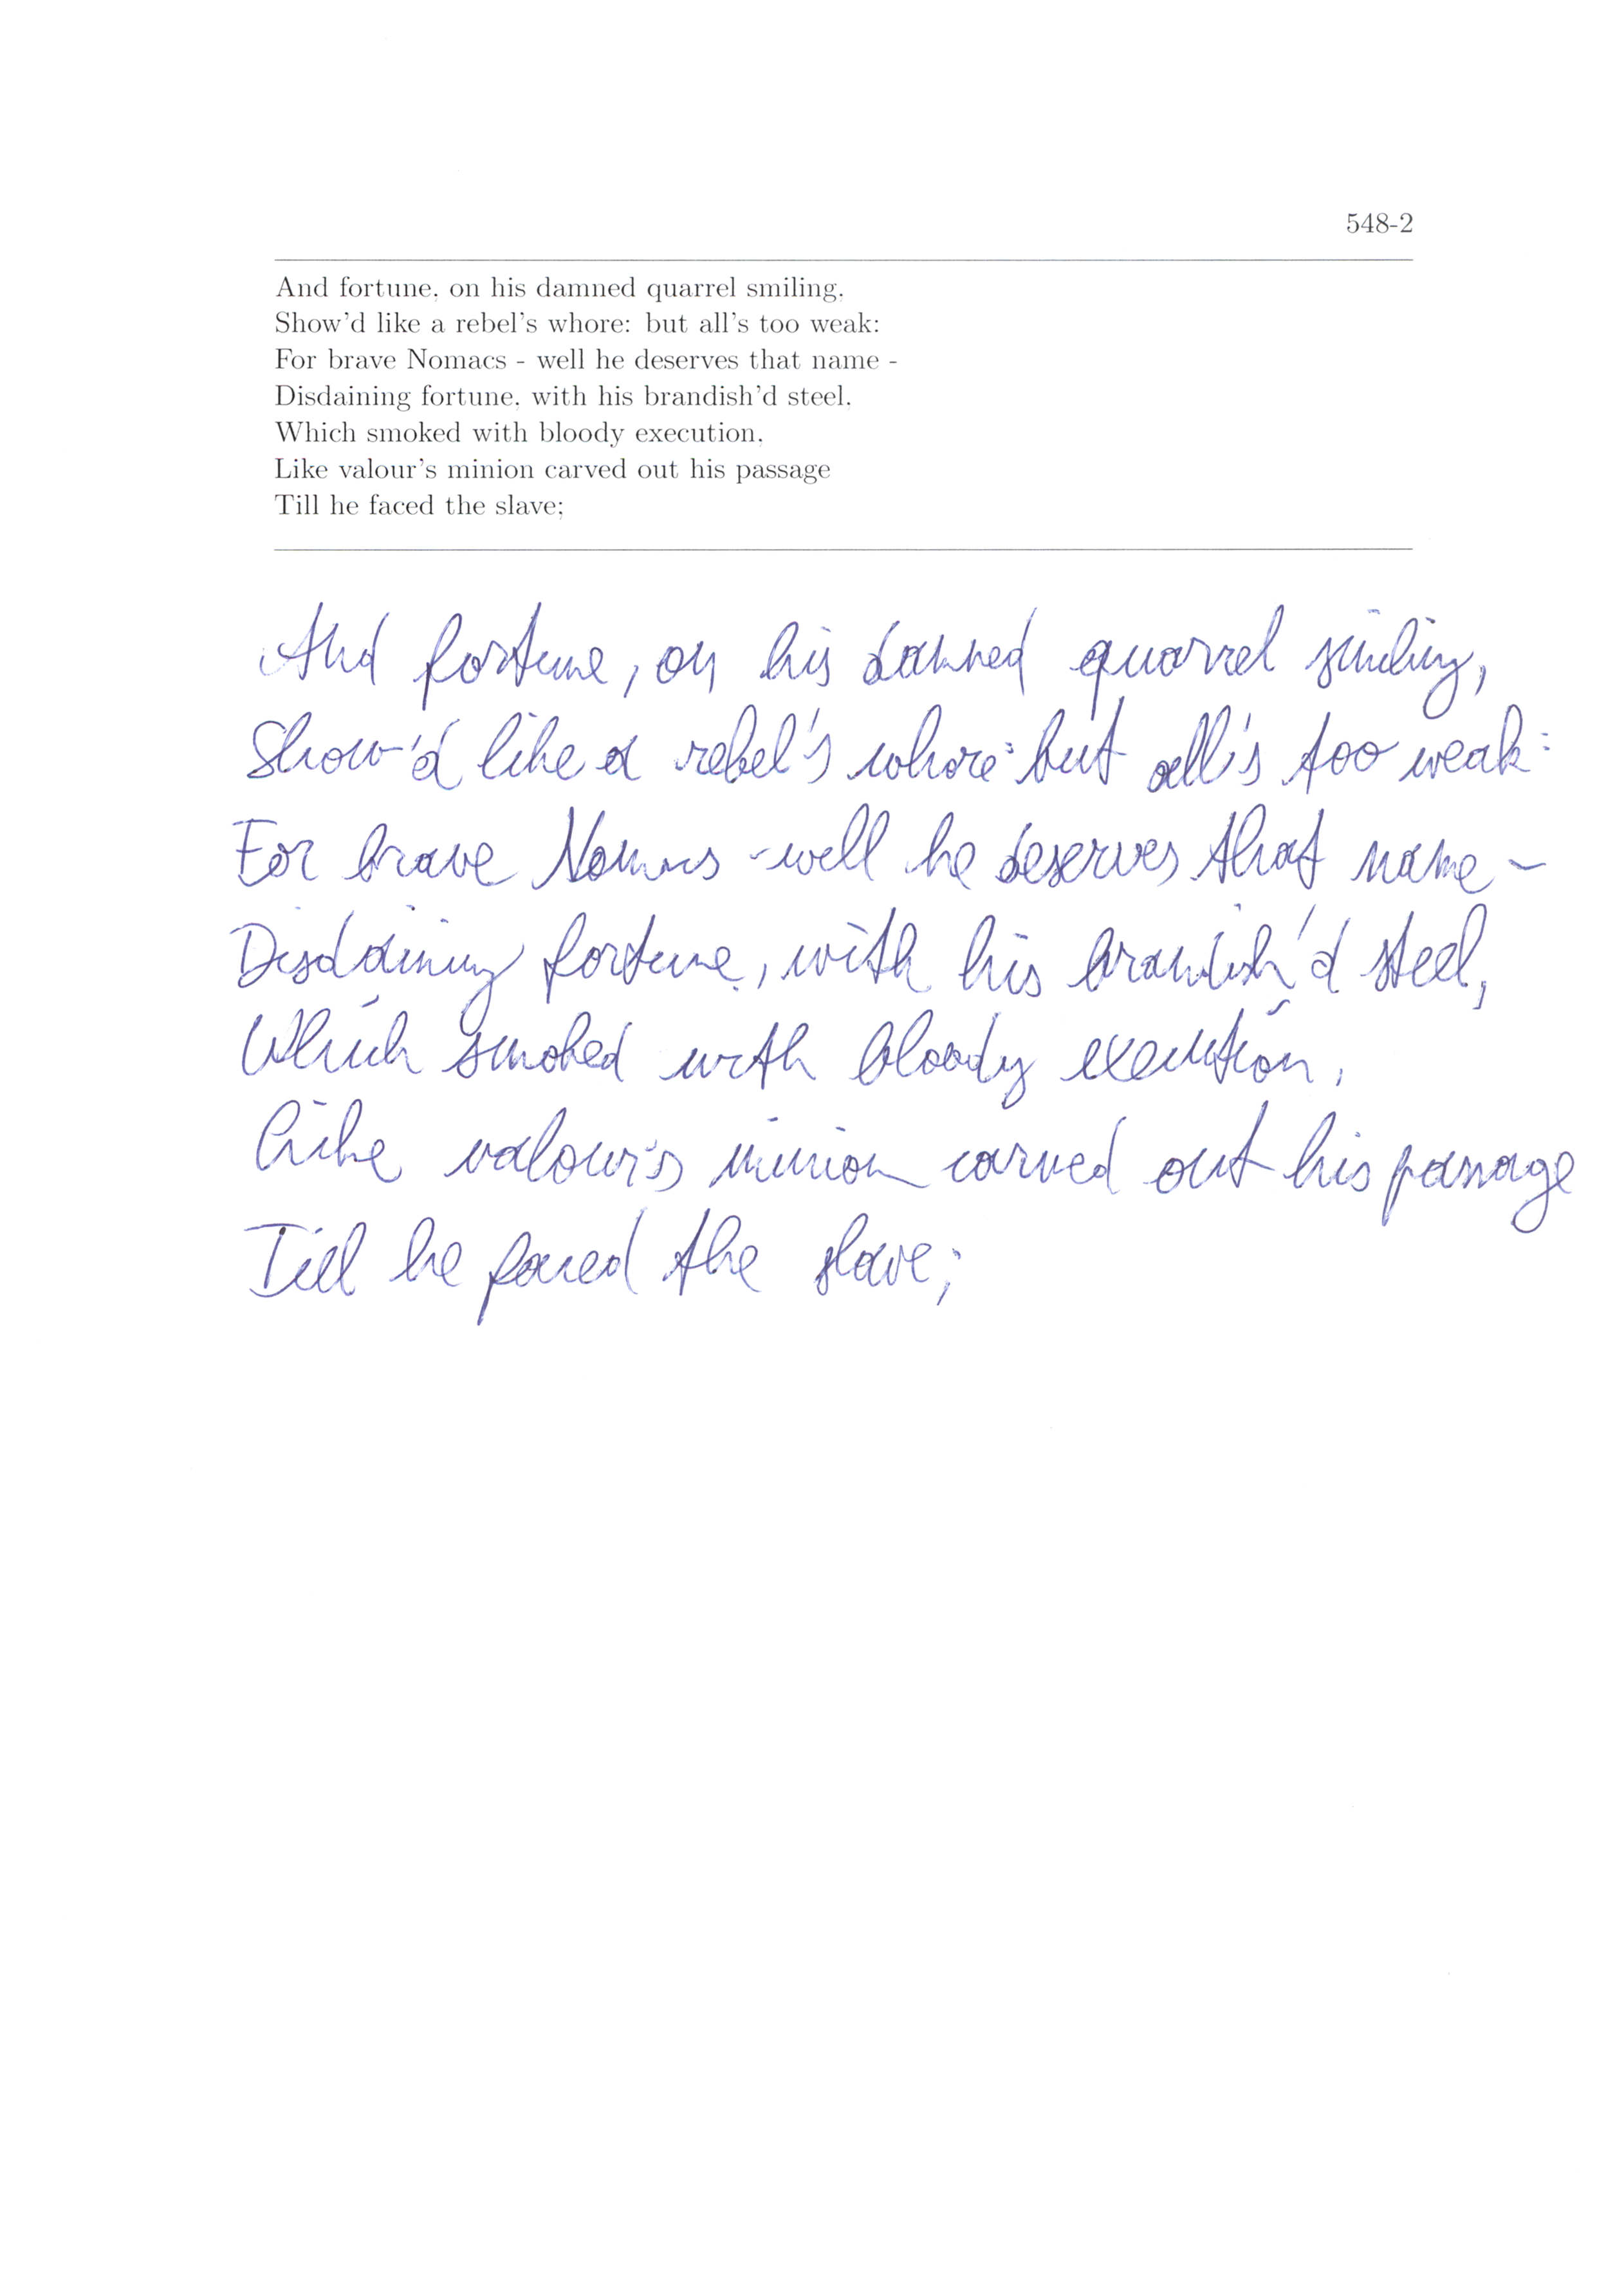 548-2
And fortune, on his damned quarrel smiling,
Show'd like a rebel's whore: but all's too weak:
For brave Nomacs - well he deserves that name -
Disdaining fortune, with his brandish'd steel,
Which smoked with bloody execution,
Like valour's minion carved out his passage
Till he faced the slave;
And fortune, on his damned quarrel smiling,
Show'd like a rebel's whore: but all's too weak:
For brave Nomacs - well he deserves that name -
Disdaining fortune, with his brandish'd steel,
Which smoked with bloody execution,
Like valour's minion carved out his passage
Till he faced the slave;